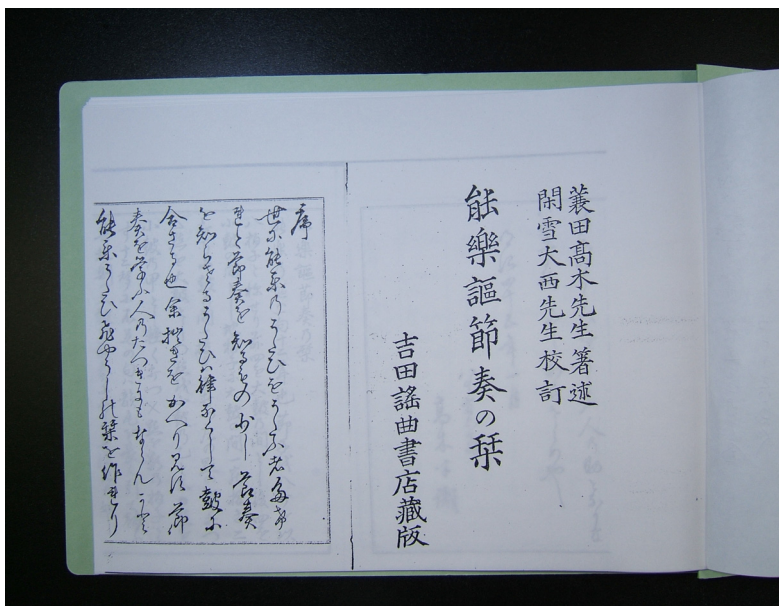 蓑田髙木先生箸述
閑雪大西先生校訂
能樂謳節奏の栞
吉田謠曲書店藏版
序
世に能楽のうたひをうたふ者多
れと節奏を知るもの少し節奏
を知らさるうたひハ律なくして鼓に
合さる也余拙きをかへり見す節
奏を学ふ人のたつきにもならんかと
能楽うたひ の栞を作れり